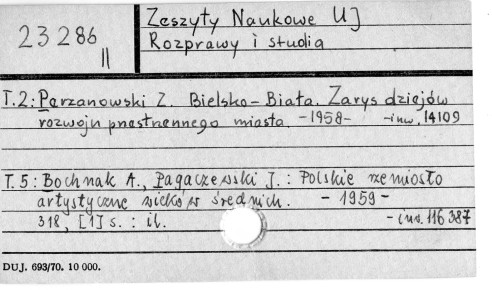 23286
II
Zeszyty Naukowe UJ
Rozprawy i studia
T.2: Parzanowski Z. Bielsko-Biała. Zarys dziejów
rozwoju przestrzennego miasta. -1958- -inw. 14109
T.5: Bochnak A., Pagaczewski J.: Polskie rzemiosło
artystyczne wieków średnich. - 1959 -
318, [1] s. : il. - inw. 116387
DUJ. 693/70. 10 000.